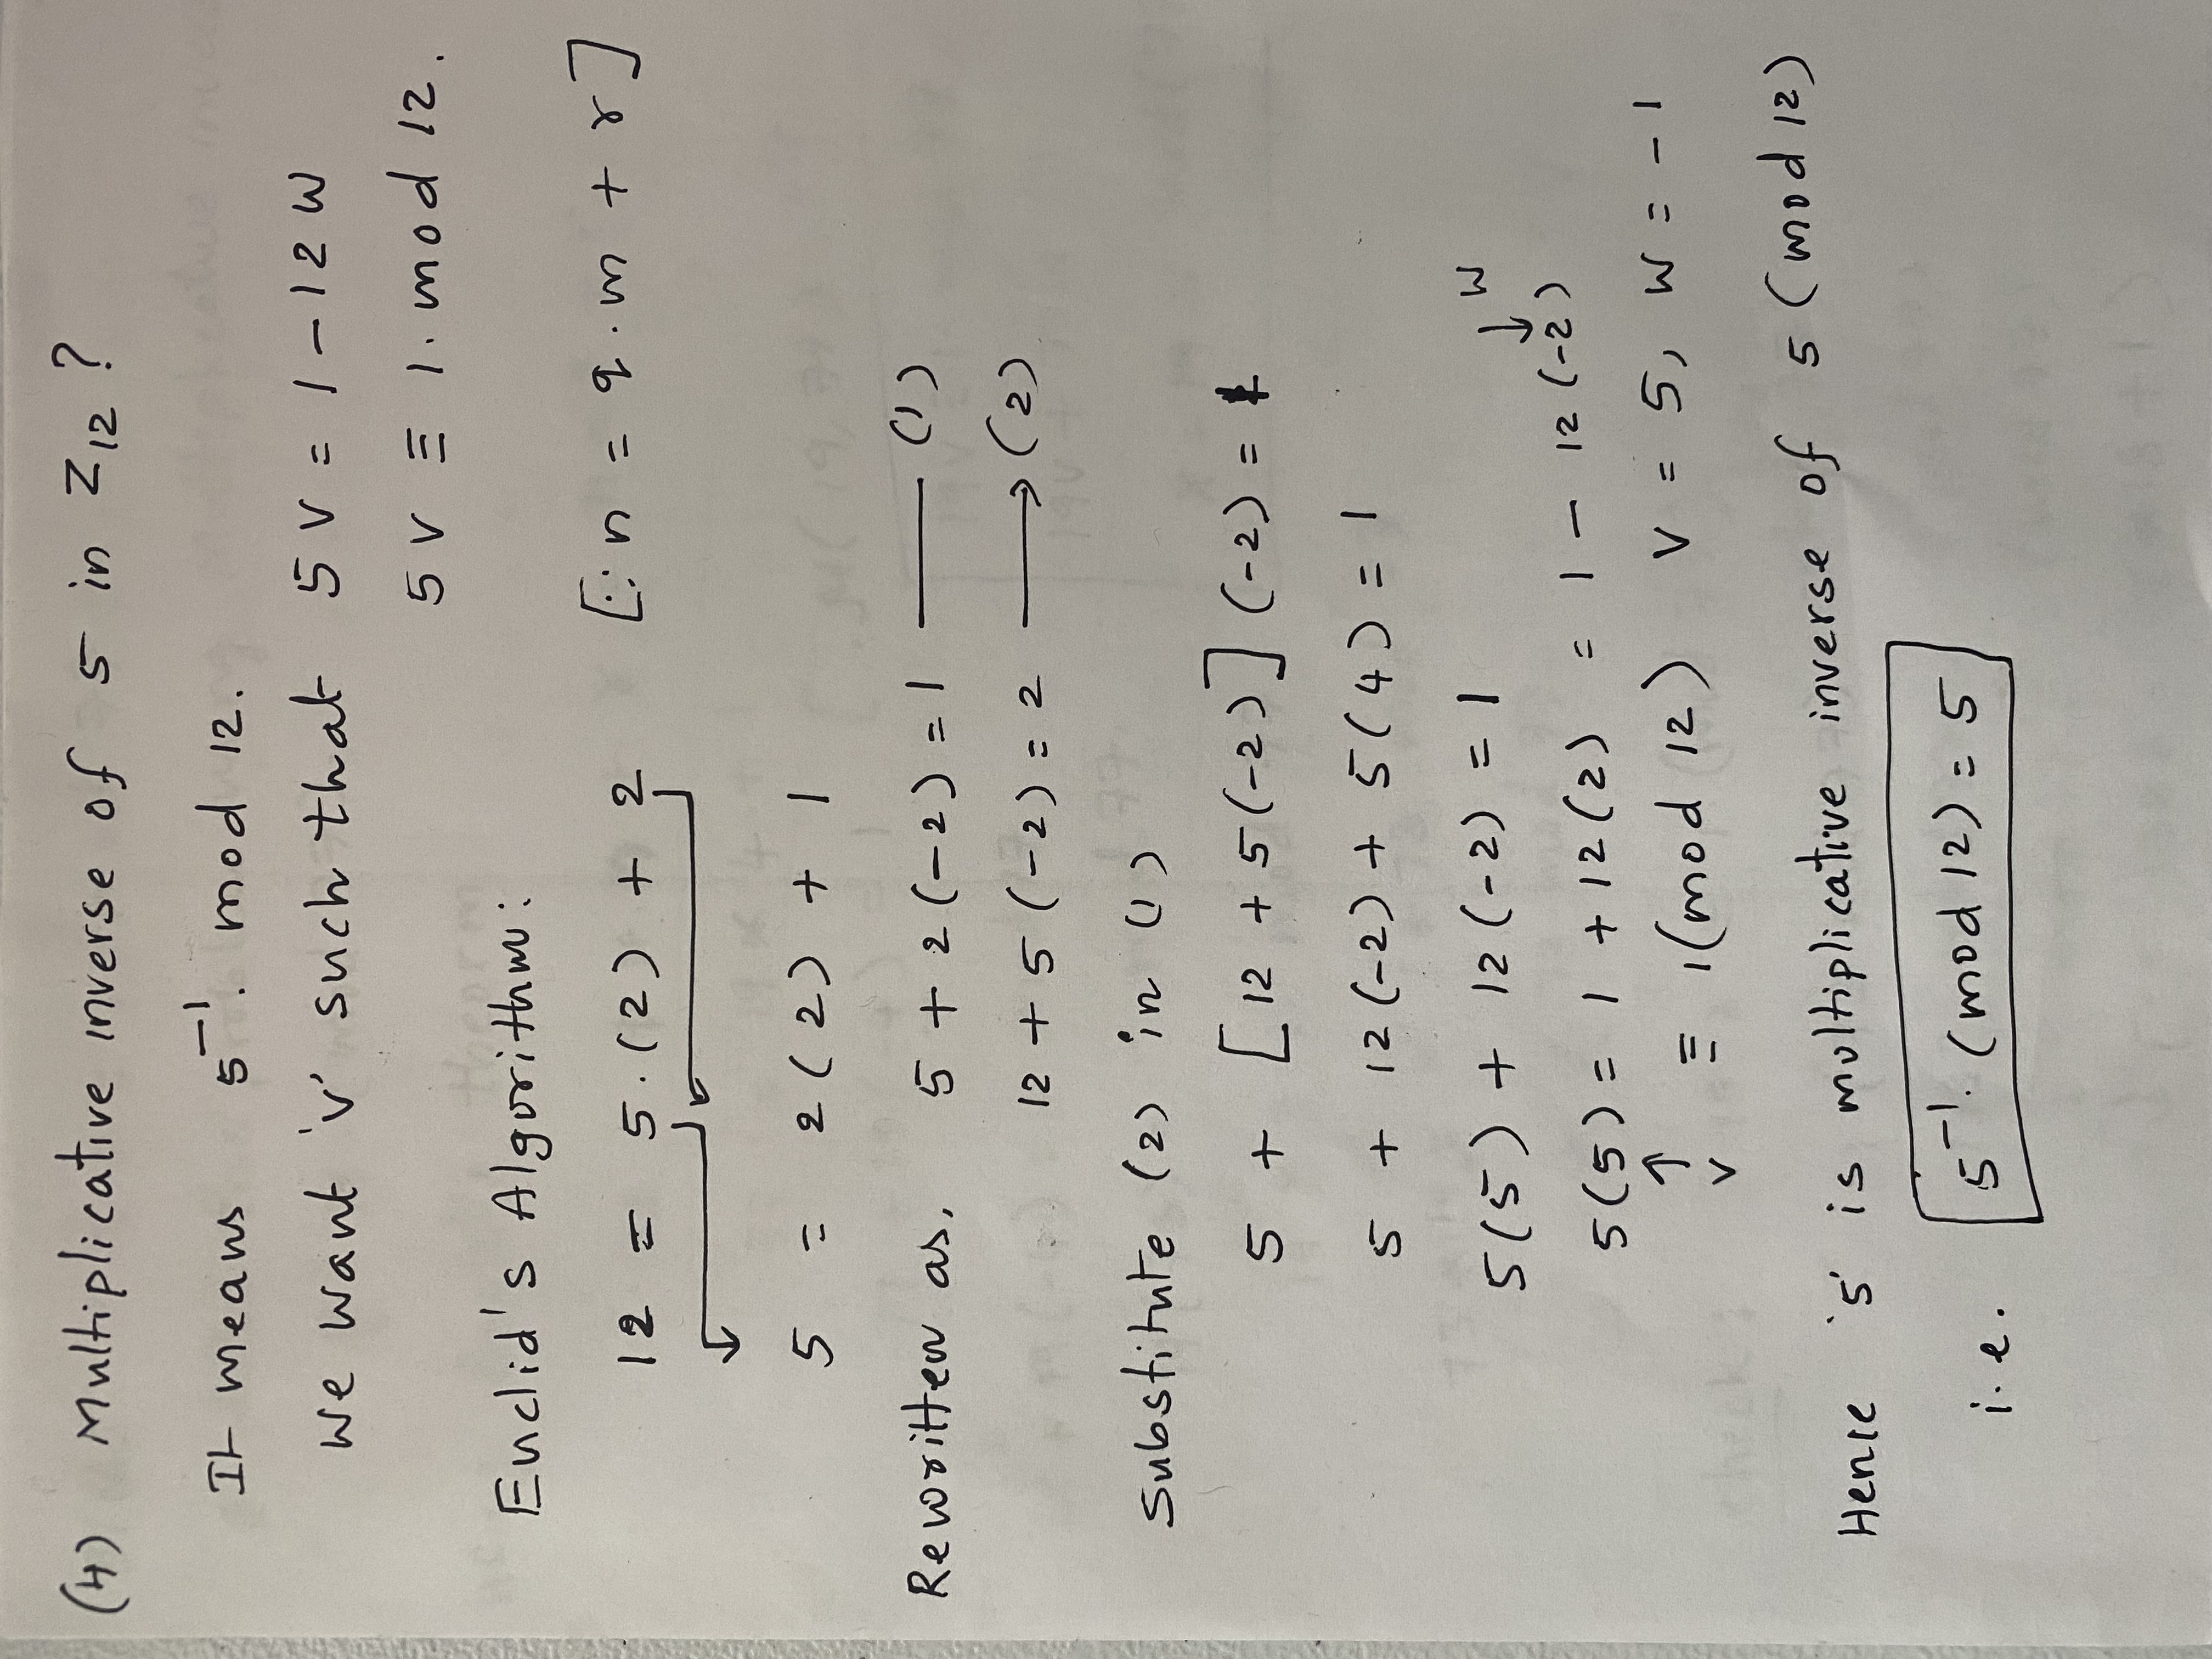 (4) Multiplicative inverse of 5 in Z₁₂ ?
It means 5⁻¹. mod 12.
We want 'v' such that 5 v = 1 - 12 W
5 v ≡ 1. mod 12.
Euclid's Algorithm:
12 = 5.(2) + 2 [∵ n = q.m + r]
5 = 2(2) + 1
Rewritten as, 5 + 2(-2) = 1 —— (1)
12 + 5(-2) = 2 ⟶ (2)
Substitute (2) in (1)
5 + [12 + 5(-2)] (-2) = 1
5 + 12(-2) + 5(4) = 1
5(5) + 12(-2) = 1
↓ W
5(5) = 1 + 12(2) = 1 - 12(-2)
↑ ≡ 1(mod 12) V = 5, W = -1
v
Hence '5' is multiplicative inverse of 5 (mod 12)
i.e. 5⁻¹. (mod 12) = 5